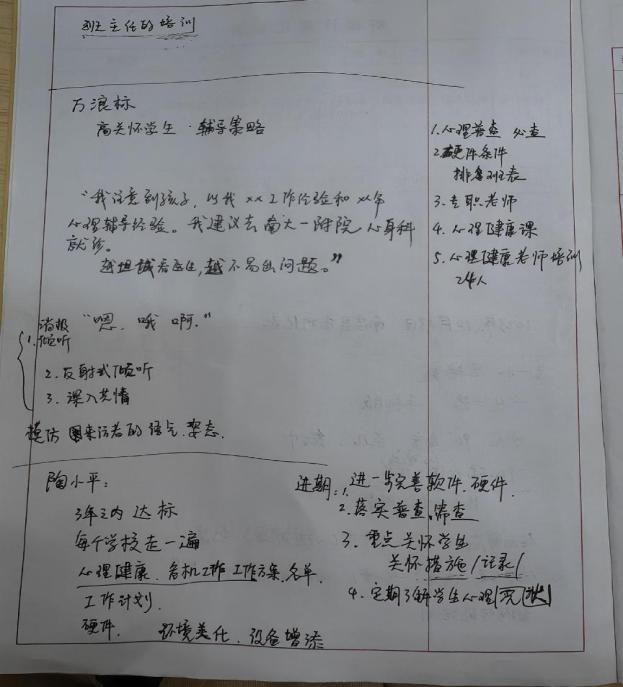 班主任的培训
万浪标
高关怀学生·辅导策略
"我注意到孩子，以我xx工作经验和xx年
心理辅导经验。我建议去南大一附院心身科
就诊。
越坦诚看医生，越不易出问题。"
1.心理普查 必查
2.硬件条件
排名列表
3.专职老师
4.心理健康课
5.心理健康老师培训
24人
1.消极倾听
"嗯、哦 啊."
2.反射式倾听
3.深入共情
模仿 来访者的语气、姿态.
陶小平:
3年之内达标
每个学校走一遍
心理健康、危机工作 工作方案、名单.
工作计划.
硬件. 环境美化、设备增添
近期:1.进一步完善软件、硬件.
2.落实普查、筛查
3.重点关怀学生
关怀措施/记录/
4.定期了解学生心理